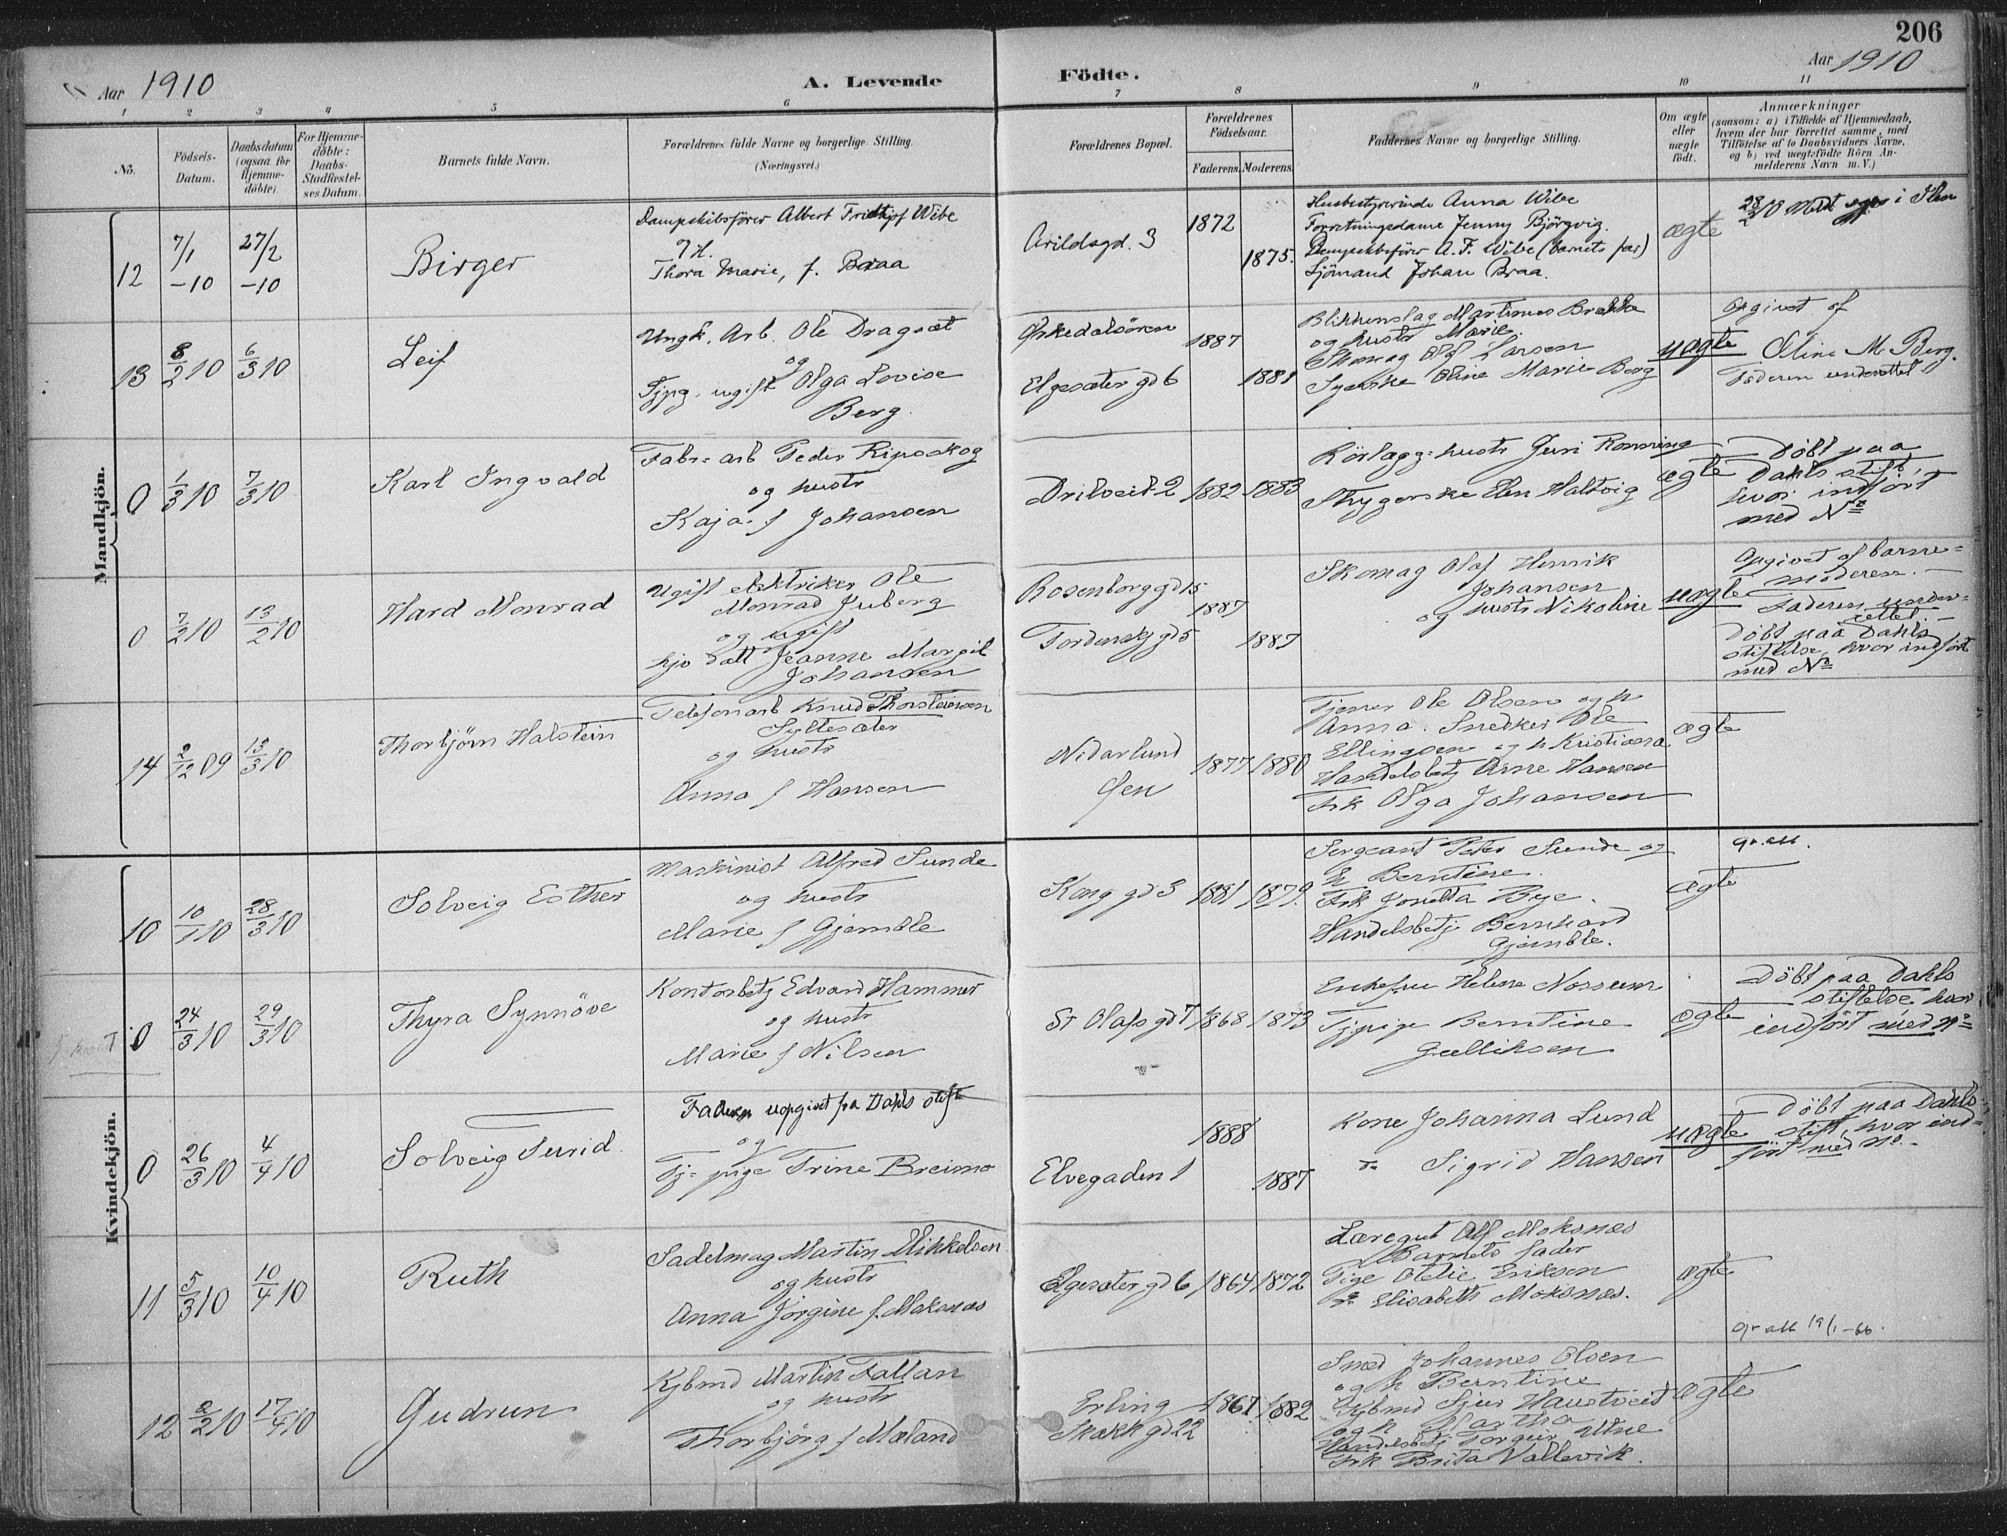 206
Aar 1910
A. Levende Födte.
Aar 1910
1 2 3 4 5 6 7 8 9 10 11
No.
Födsels-Datum.
Daabsdatum (ogsaa for Hjemme-döbte).
For Hjemme-döbte: Daabs-Stadfæstel-ses Datum.
Barnets fulde Navn.
Forældrenes fulde Navne og borgerlige Stilling. (Næringsvei.)
Forældrenes Bopæl.
Forældrenes Födselsaar.
Faderens. Moderens.
Faddernes Navne og borgerlige Stilling.
Om ægte eller uægte födt.
Anmærkninger
(saasom: a) i Tilfælde af Hjemmedaab,
hvem der har forrettet samme, med
Tilföielse af to Daabsvidners Navne,
og b) ved uægtefödte Börn An-
melderens Navn m. V.)
Mandkjön.
12
7/1 -10
27/2 -10
Birger
Dampskibsförer Albert Fridtjof Wibe
og H.
Thora Marie, f. Braa
Arildsgd. 3
1872
1875.
Husbestyrerinde Anna Wibe
Forretningsdame Jenny Björgvig.
Dampskibsförer A. F. Wibe (barnets far)
Sjömand Johan Braa.
ægte
13
8/2 10
6/3 10
Leif
Ungk. Arb. Ole Dragsæt
og
Tjpg. ugift Olga Lovise
Berg.
Orkedalsören
Elgesæter gd 6
1887
1881
Blikkenslag Martinus Brække
og hustr Marie.
Skomag Olaf Larsen
Syerske Oline Marie Berg
uægte
Opgivet af
Oline M. Berg.
Faderen underrettet
0
1/3 10
7/3 10
Karl Ingvald
Fabr. arb Peder Ripsskog
og hustr
Kaja f Johansen
Drilveit 2
1882
1883
Rörlægg. hustr Guri Rönning
Strygerske Elen Haltvig
ægte
Döbt paa
Dahls stift,
hvor indfört
med No
0
7/2 10
13/2 10
Hard Monrad
Ugift elektriker Ole
Monrad Juberg
og ugift
Jeanne Margit
Johansen
Rosenborg gd 15
Tordensk gd 5
1887
1887
Skomag Olaf Henrik
Johansen
og hustr Nikoline
uægte
Opgivet af barne-
moderen.
Faderen under-
rettet.
Döbt paa Dahls
stiftelse, hvor indfört
med No
14
2/12 09
13/3 10
Thorbjörn Halstein
Telefonarb Knud Thorsteinsen
Syltesæter
og hustr
Anna f Hansen
Nidarlund
Öen
1877
1880
Tjener Ole Olsen og h
Anna. Snedker Ole
Ellingsen og h Kristiana
Handelsbetj Arne Hansen
Frk Olga Johansen
ægte
Kvindekjön.
10
10/1 10
28/3 10
Solveig Esther
Maskinist Alfred Sunde
og hustr
Marie f Gjemble
Kong gd 3
1881
1879.
Sergeant Peter Sunde og
h Berntine.
Frk Jonetta Bye.
Handelsbetj Bernhard
Gjemble.
ægte
gr. att.
0
24/3 10
29/3 10
Thyra Synnöve
Kontorbetj Edvard Hammer
og hustr
Marie f Nilsen
St Olafs gd 7
1868
1873
Enkefru Helene Nossum
Tjpige Berntine
Gulliksen
ægte
Döbt paa Dahls
stiftelse hvor
indfört med No
0
26/3 10
4/4 10
Solveig Turid
Faderen uopgivet fra Dahls stift
og
Tj- pige Trine Breimo
Elvegaden 1
1888
1887
Kone Johanna Lund
Sigrid Hansen
uægte
Döbt paa Dahls
stift, hvor ind-
fört med No.
11
5/3 10
10/4 10
Ruth
Sadelmag Martin Mikkelsen
og hustr
Anna Jörgine f. Moksnæs
Elgesæter gd 6
1864
1872
Læregut Alf Moksnæs
Barnets fader
Pige Otelie Eriksen
Elisabeth Moksnæs.
ægte
gr att 19/1-66.
12
2/2 10
17/4 10
Gudrun
Kjbmd Martin Fallan
og hustr
Thorbjörg f Mæland
Erling
Skakk gd 22
1867
1882
Smed Johannes Olsen
og h Berntine
Kjbmd Sjur Haustveid
og h Martha
Handelsbetj Torgeir Utne
Frk Brita Vallevik.
ægte